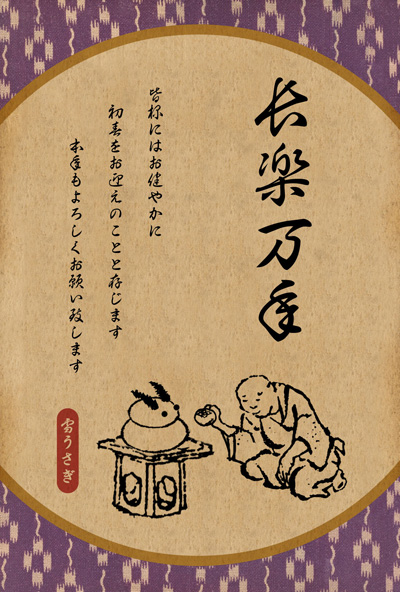 長楽万年
皆様にはお健やかに
初春をお迎えのことと存じます
本年もよろしくお願い致します
雪うさぎ